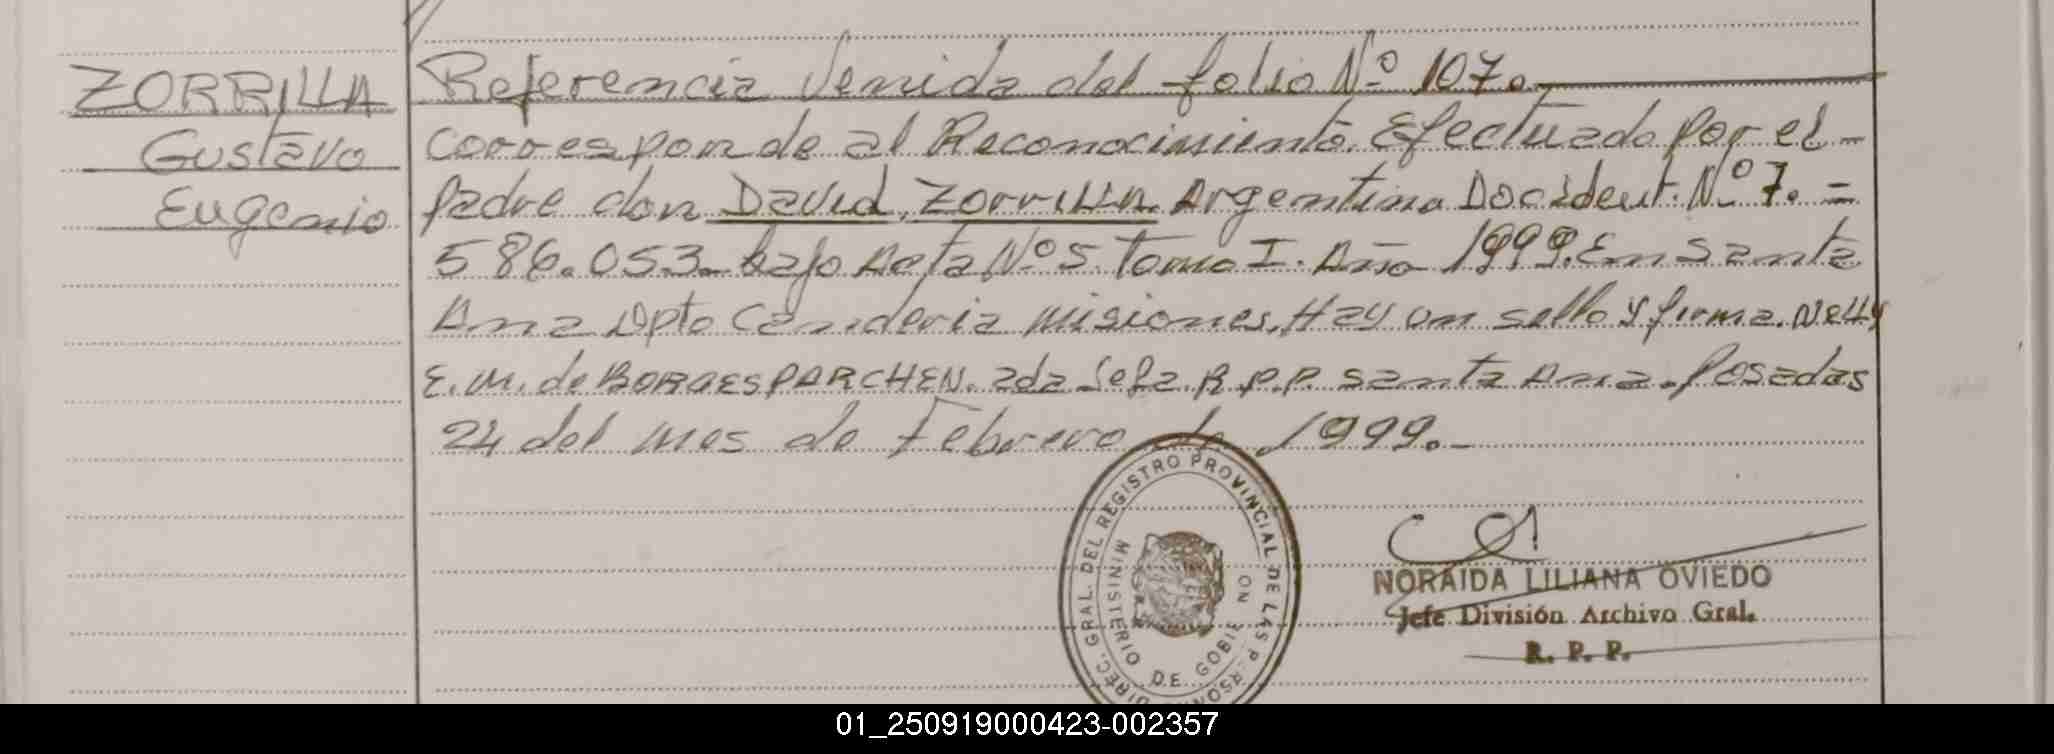 ZORRILLA
Gustavo
Eugenio
Referencia Venida del folio Nº 107.
corresponde al Reconocimiento. Efectuado por el -
padre don David. Zorrilla. Argentino Doc.ident. Nº 7. =
586.053. bajo Acta Nº 5. Tomo I. Año 1999. En Santa
Ana Dpto Candeleria Misiones. Hay un sello y firma. Nelly
E. M. de BORGES PARCHEN. Jefa. R.P.P. Santa Ana. Posadas
24 del mes de Febrero de 1999. -
DIREC. GRAL. DEL REGISTRO PROVINCIAL DE LAS PERSONAS
MINISTERIO DE GOBIERNO
NORAIDA LILIANA OVIEDO
Jefe División Archivo Gral.
R. P. P.
01_250919000423-002357